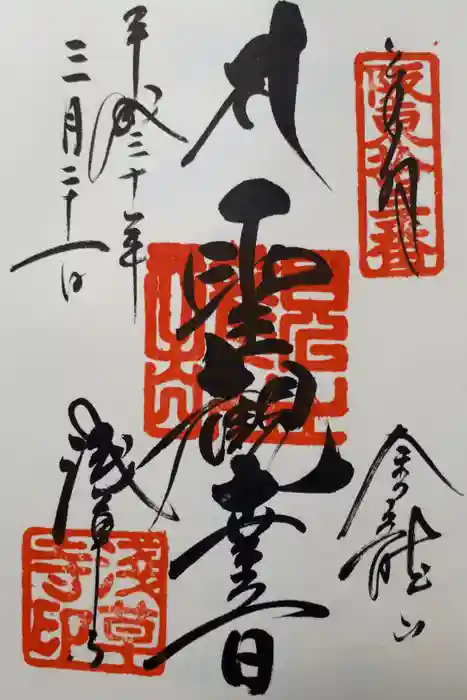 奉拝
坂東拾三番
金龍山
聖観世音
浅草寺
浅草寺印
平成三十年
三月二十一日